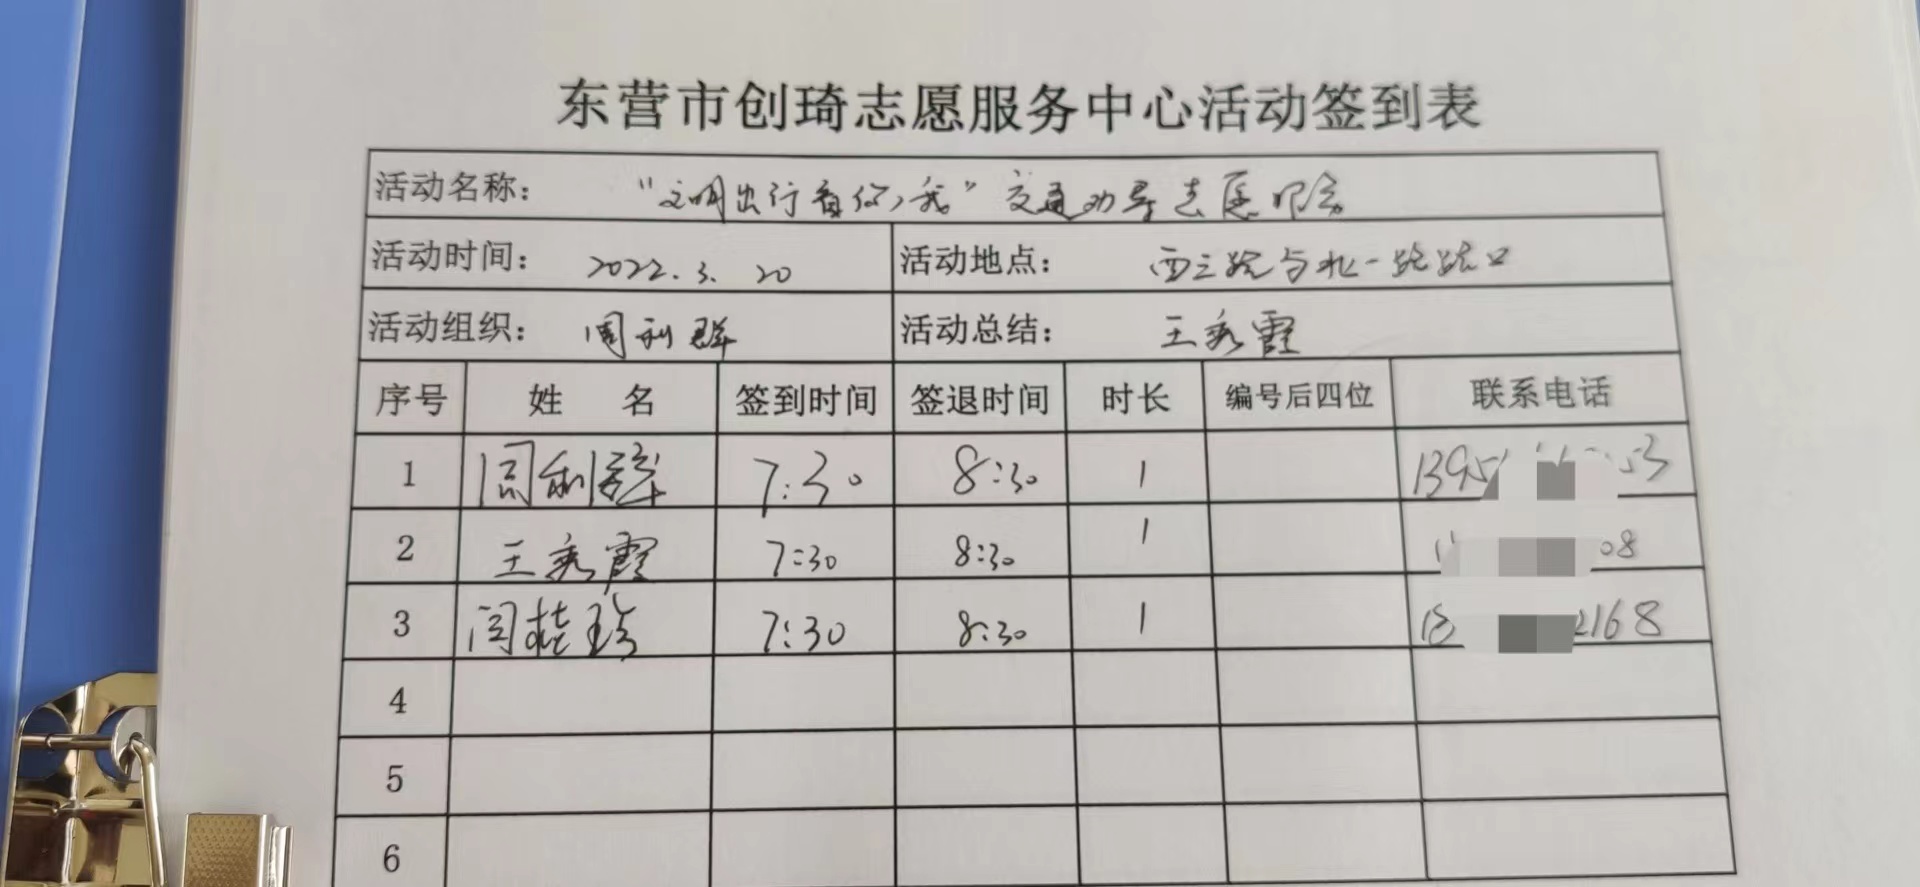 东营市创琦志愿服务中心活动签到表
活动名称： “文明出行有你、我”交通劝导志愿服务
活动时间： 2022.3.20 活动地点： 西三路与北一路路口
活动组织： 周利群 活动总结： 王秀霞
序号 姓名 签到时间 签退时间 时长 编号后四位 联系电话
1 周利群 7:30 8:30 1 1395 53
2 王秀霞 7:30 8:30 1 08
3 闫桂 7:30 8:30 1 2168
4
5
6